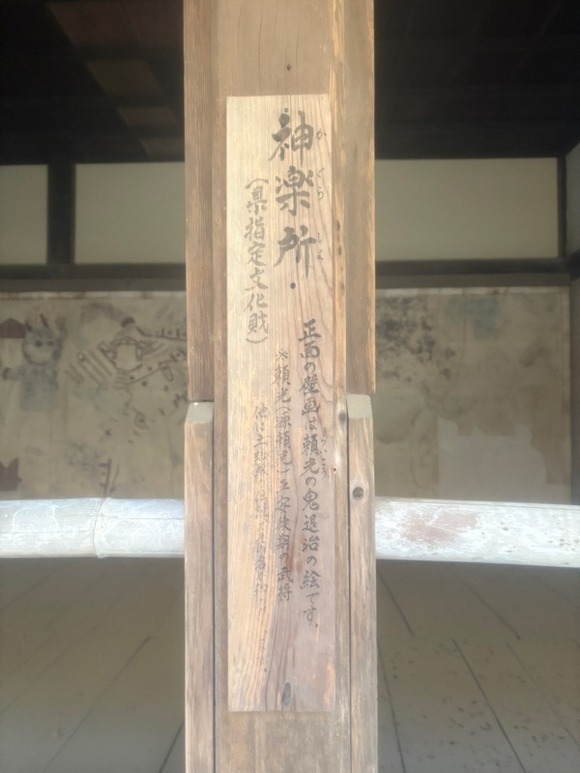 神楽所・
かぐらしょ
(県指定文化財)
正面の壁画は頼光の鬼退治の絵です。
らいこう
※頼光(源頼光)平安後期の武将
他に土蜘蛛